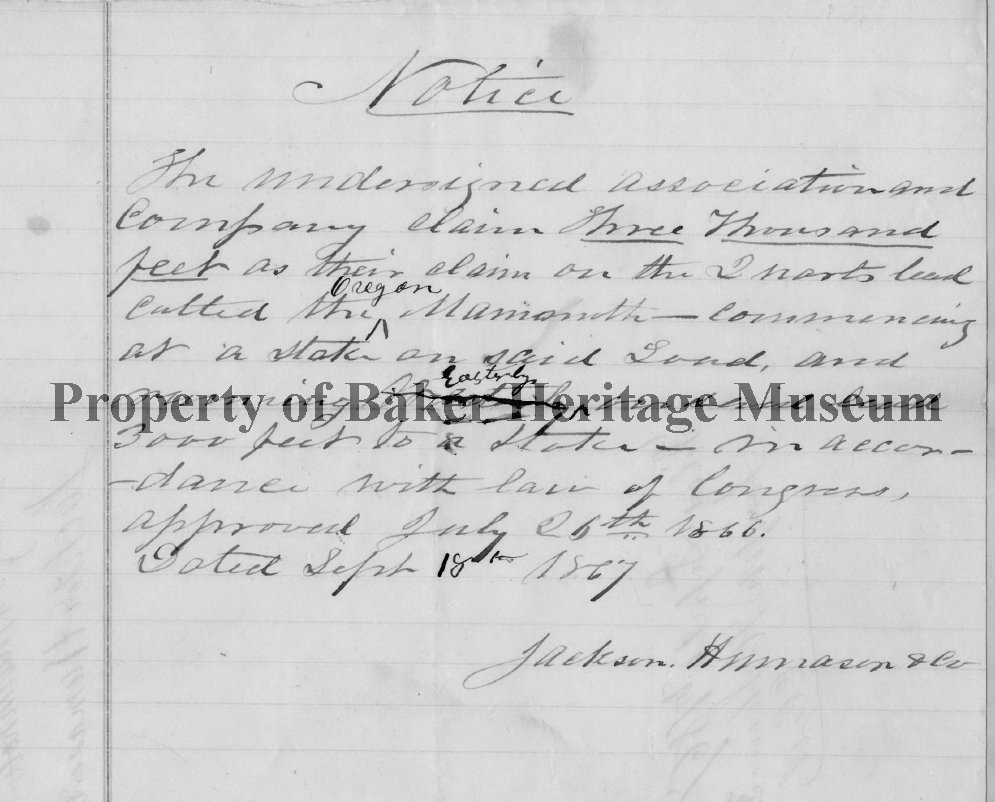 Notice
The undersigned association and
Company claim Three Thousand
feet as their claim on the Quarts lead
called the Oregon Mammoth — commencing
at a stake on said Lead, and
running Easterly on said lead
Property of Baker Heritage Museum
3000 feet to a Stake — in accor-
-dance with law of Congress,
approved July 26th 1866.
Dated Sept 18th 1867
Jackson. Humason & Co